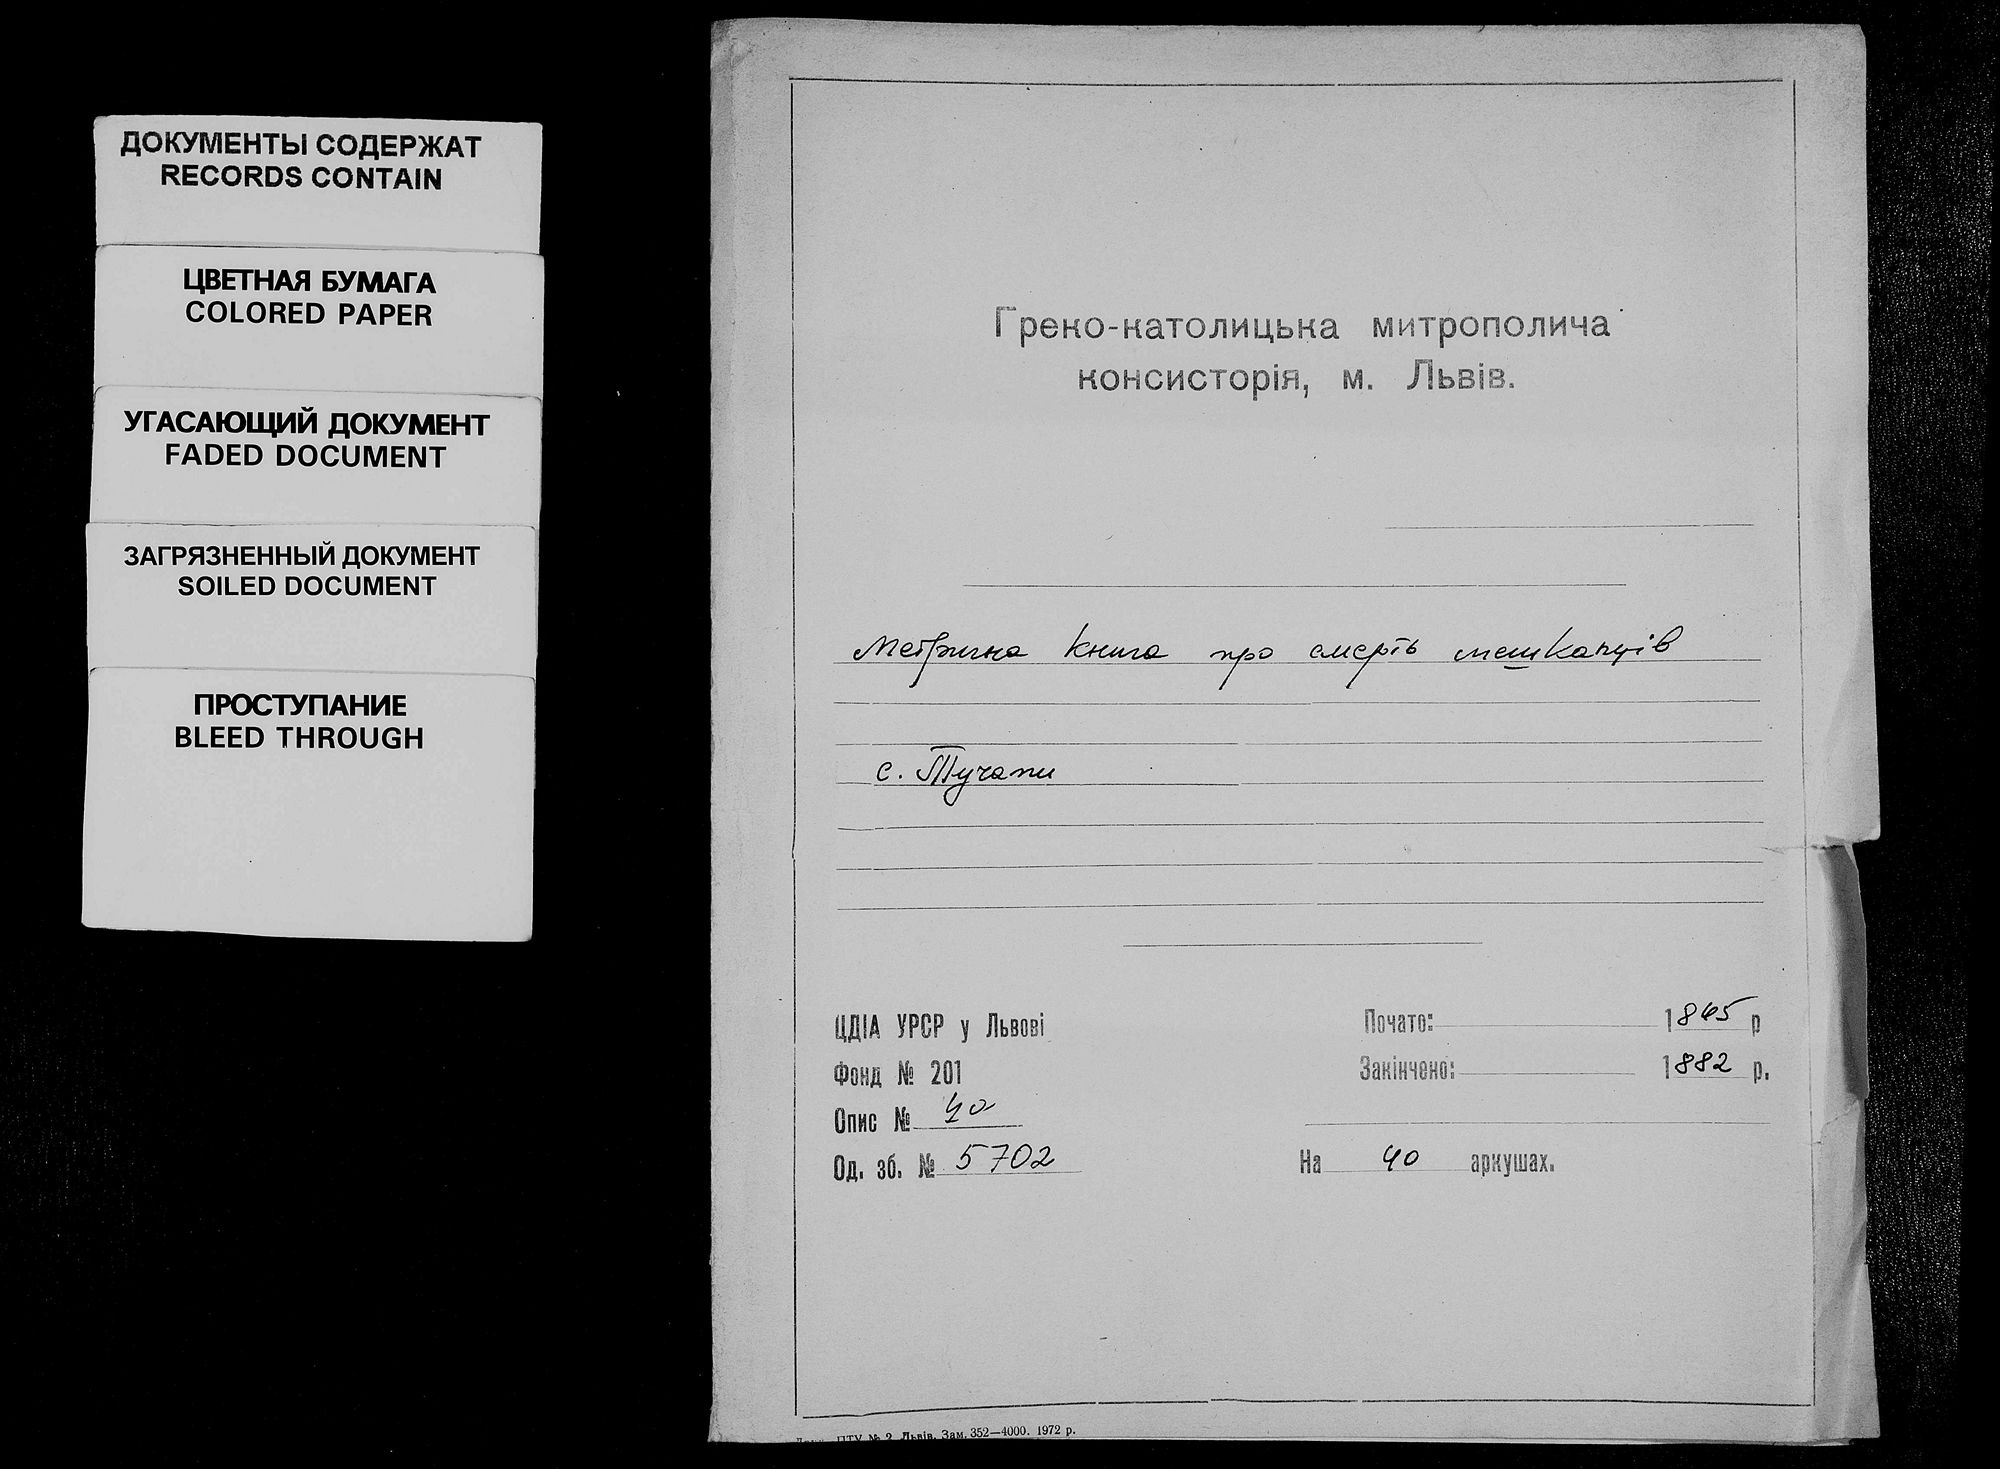 ДОКУМЕНТЫ СОДЕРЖАТ
RECORDS CONTAIN
ЦВЕТНАЯ БУМАГА
COLORED PAPER
УГАСАЮЩИЙ ДОКУМЕНТ
FADED DOCUMENT
ЗАГРЯЗНЕННЫЙ ДОКУМЕНТ
SOILED DOCUMENT
ПРОСТУПАНИЕ
BLEED THROUGH
Греко-католицька митрополича
консисторія, м. Львів.
Метрична книга про смерть мешканців
с. Тучапи
ЦДІА УРСР у Львові
Фонд № 201
Опис № 40
Од. зб. № 5702
Почато: 1845 р
Закінчено: 1882 р.
На 40 аркушах.
ПТУ № 2 Львів. Зам. 352—4000. 1972 р.